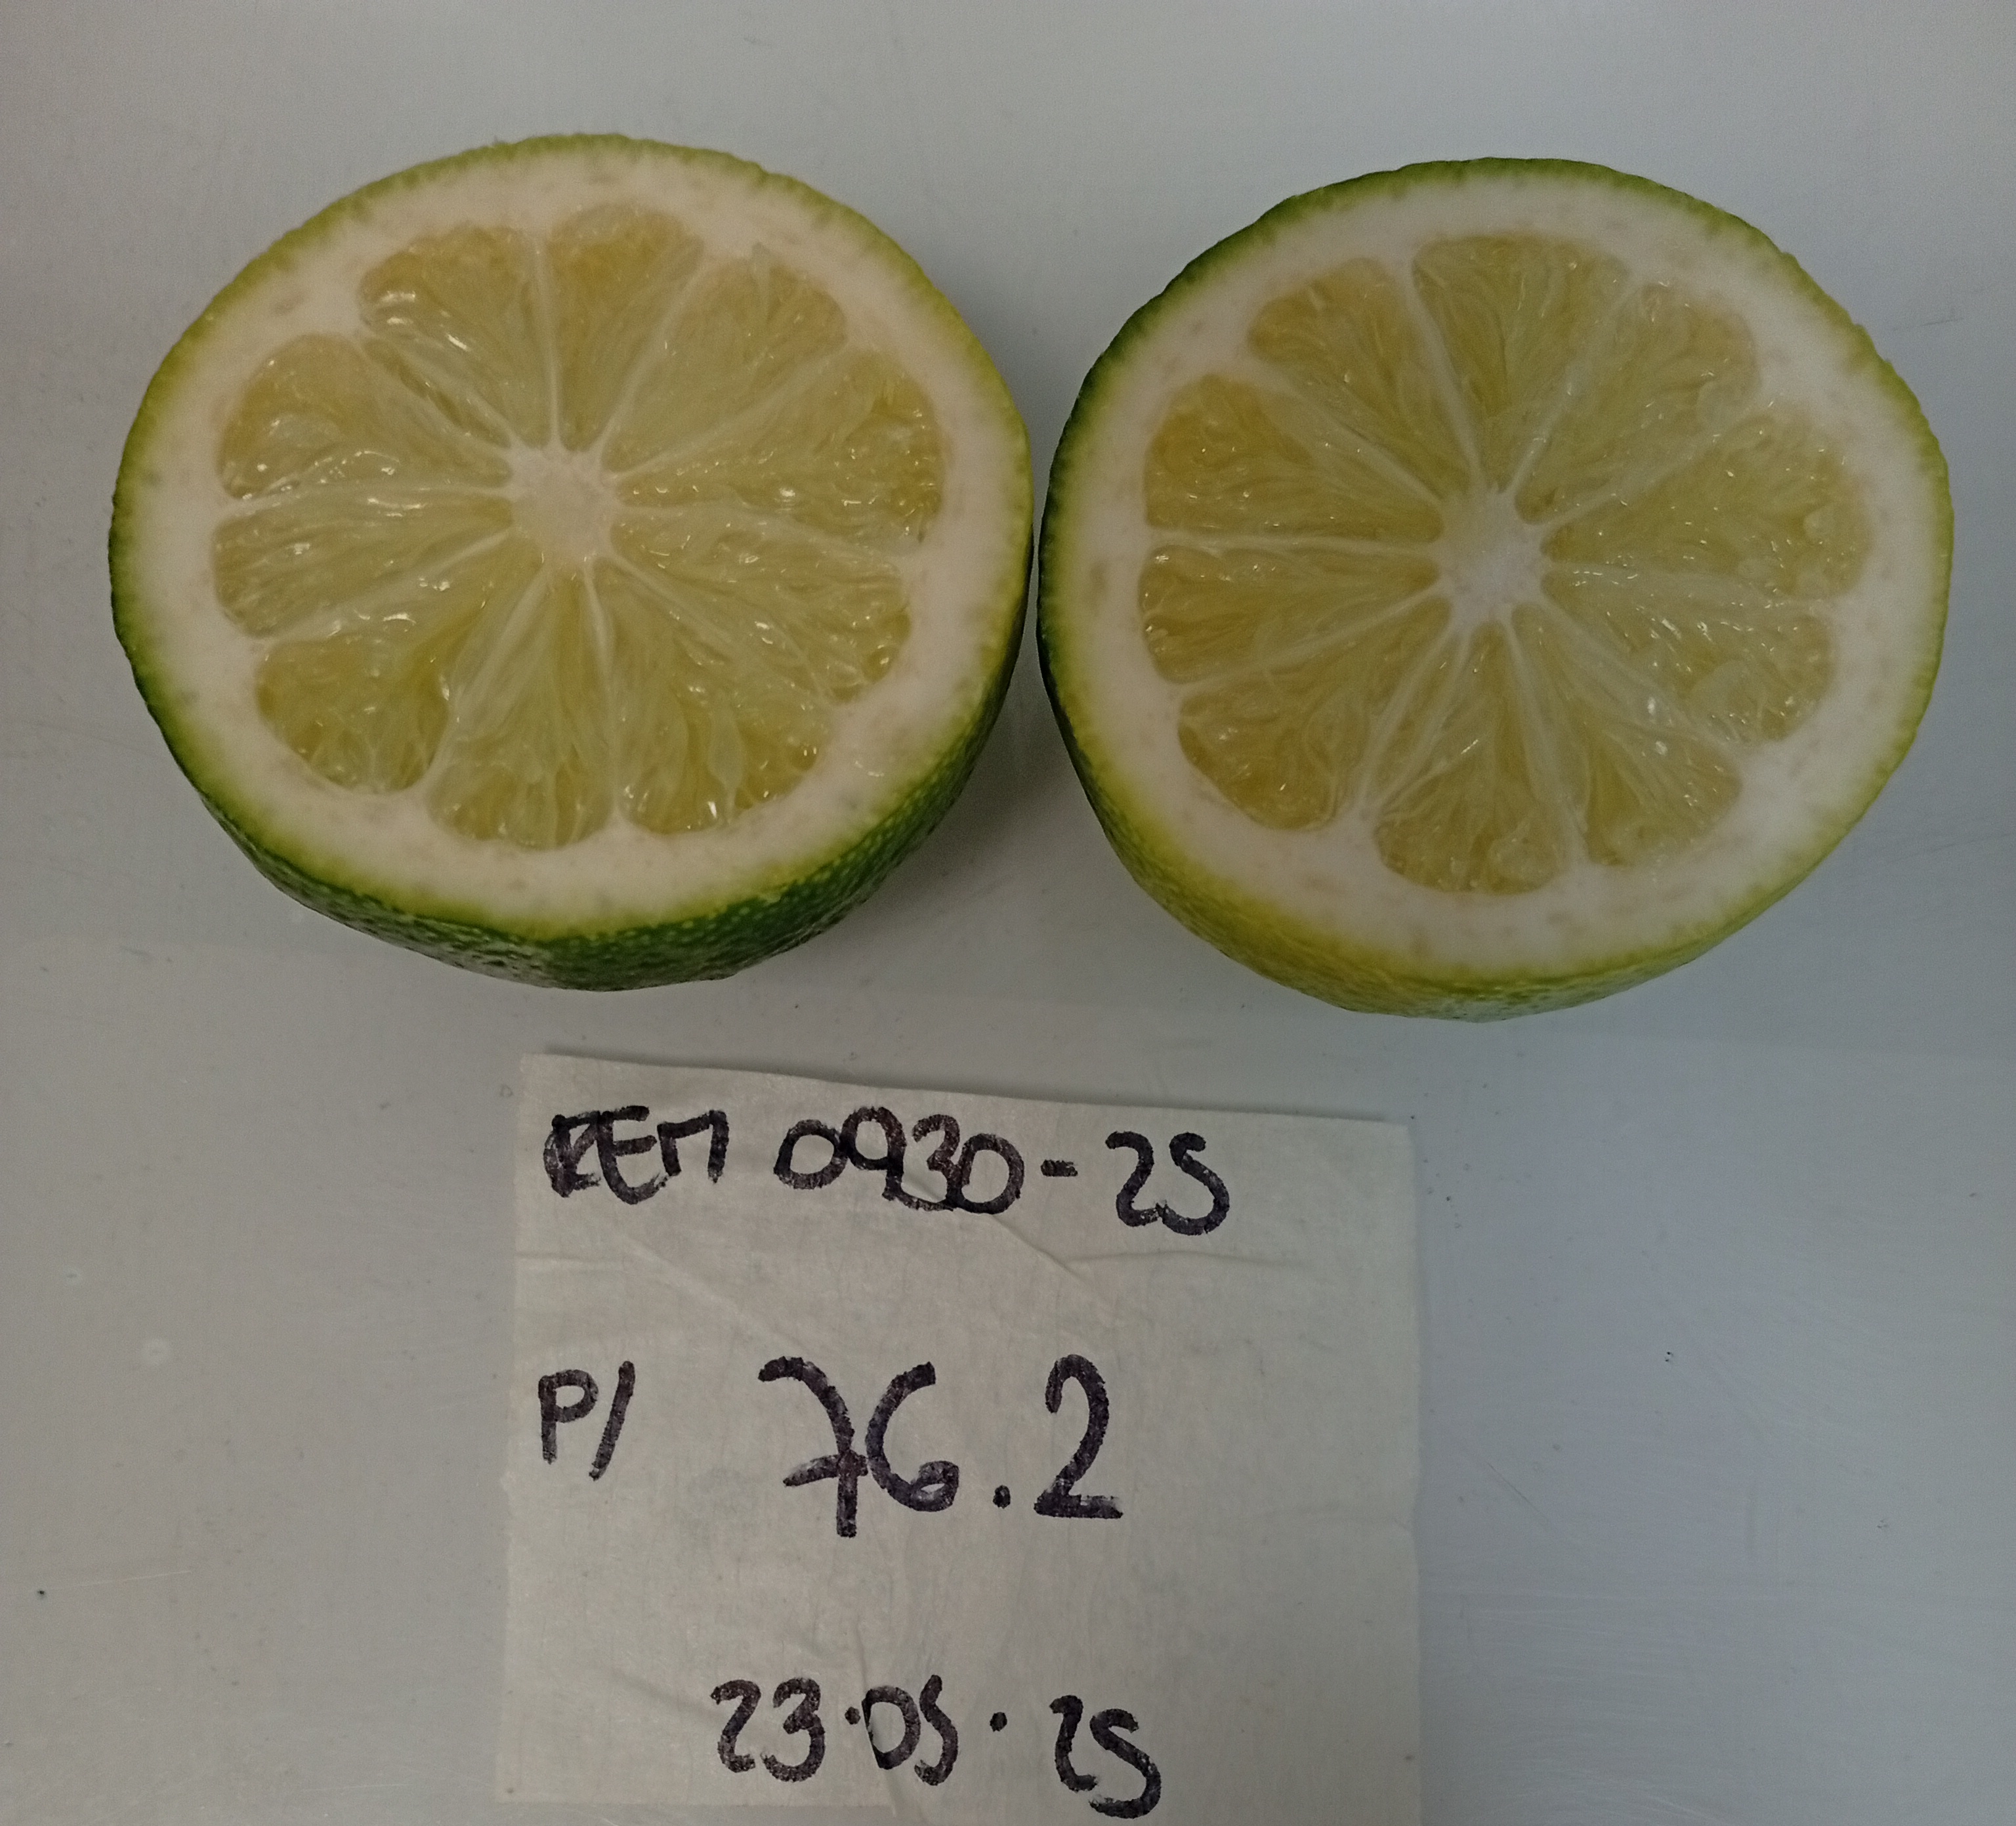 REM 0930-25
P/ 76.2
23.05.25